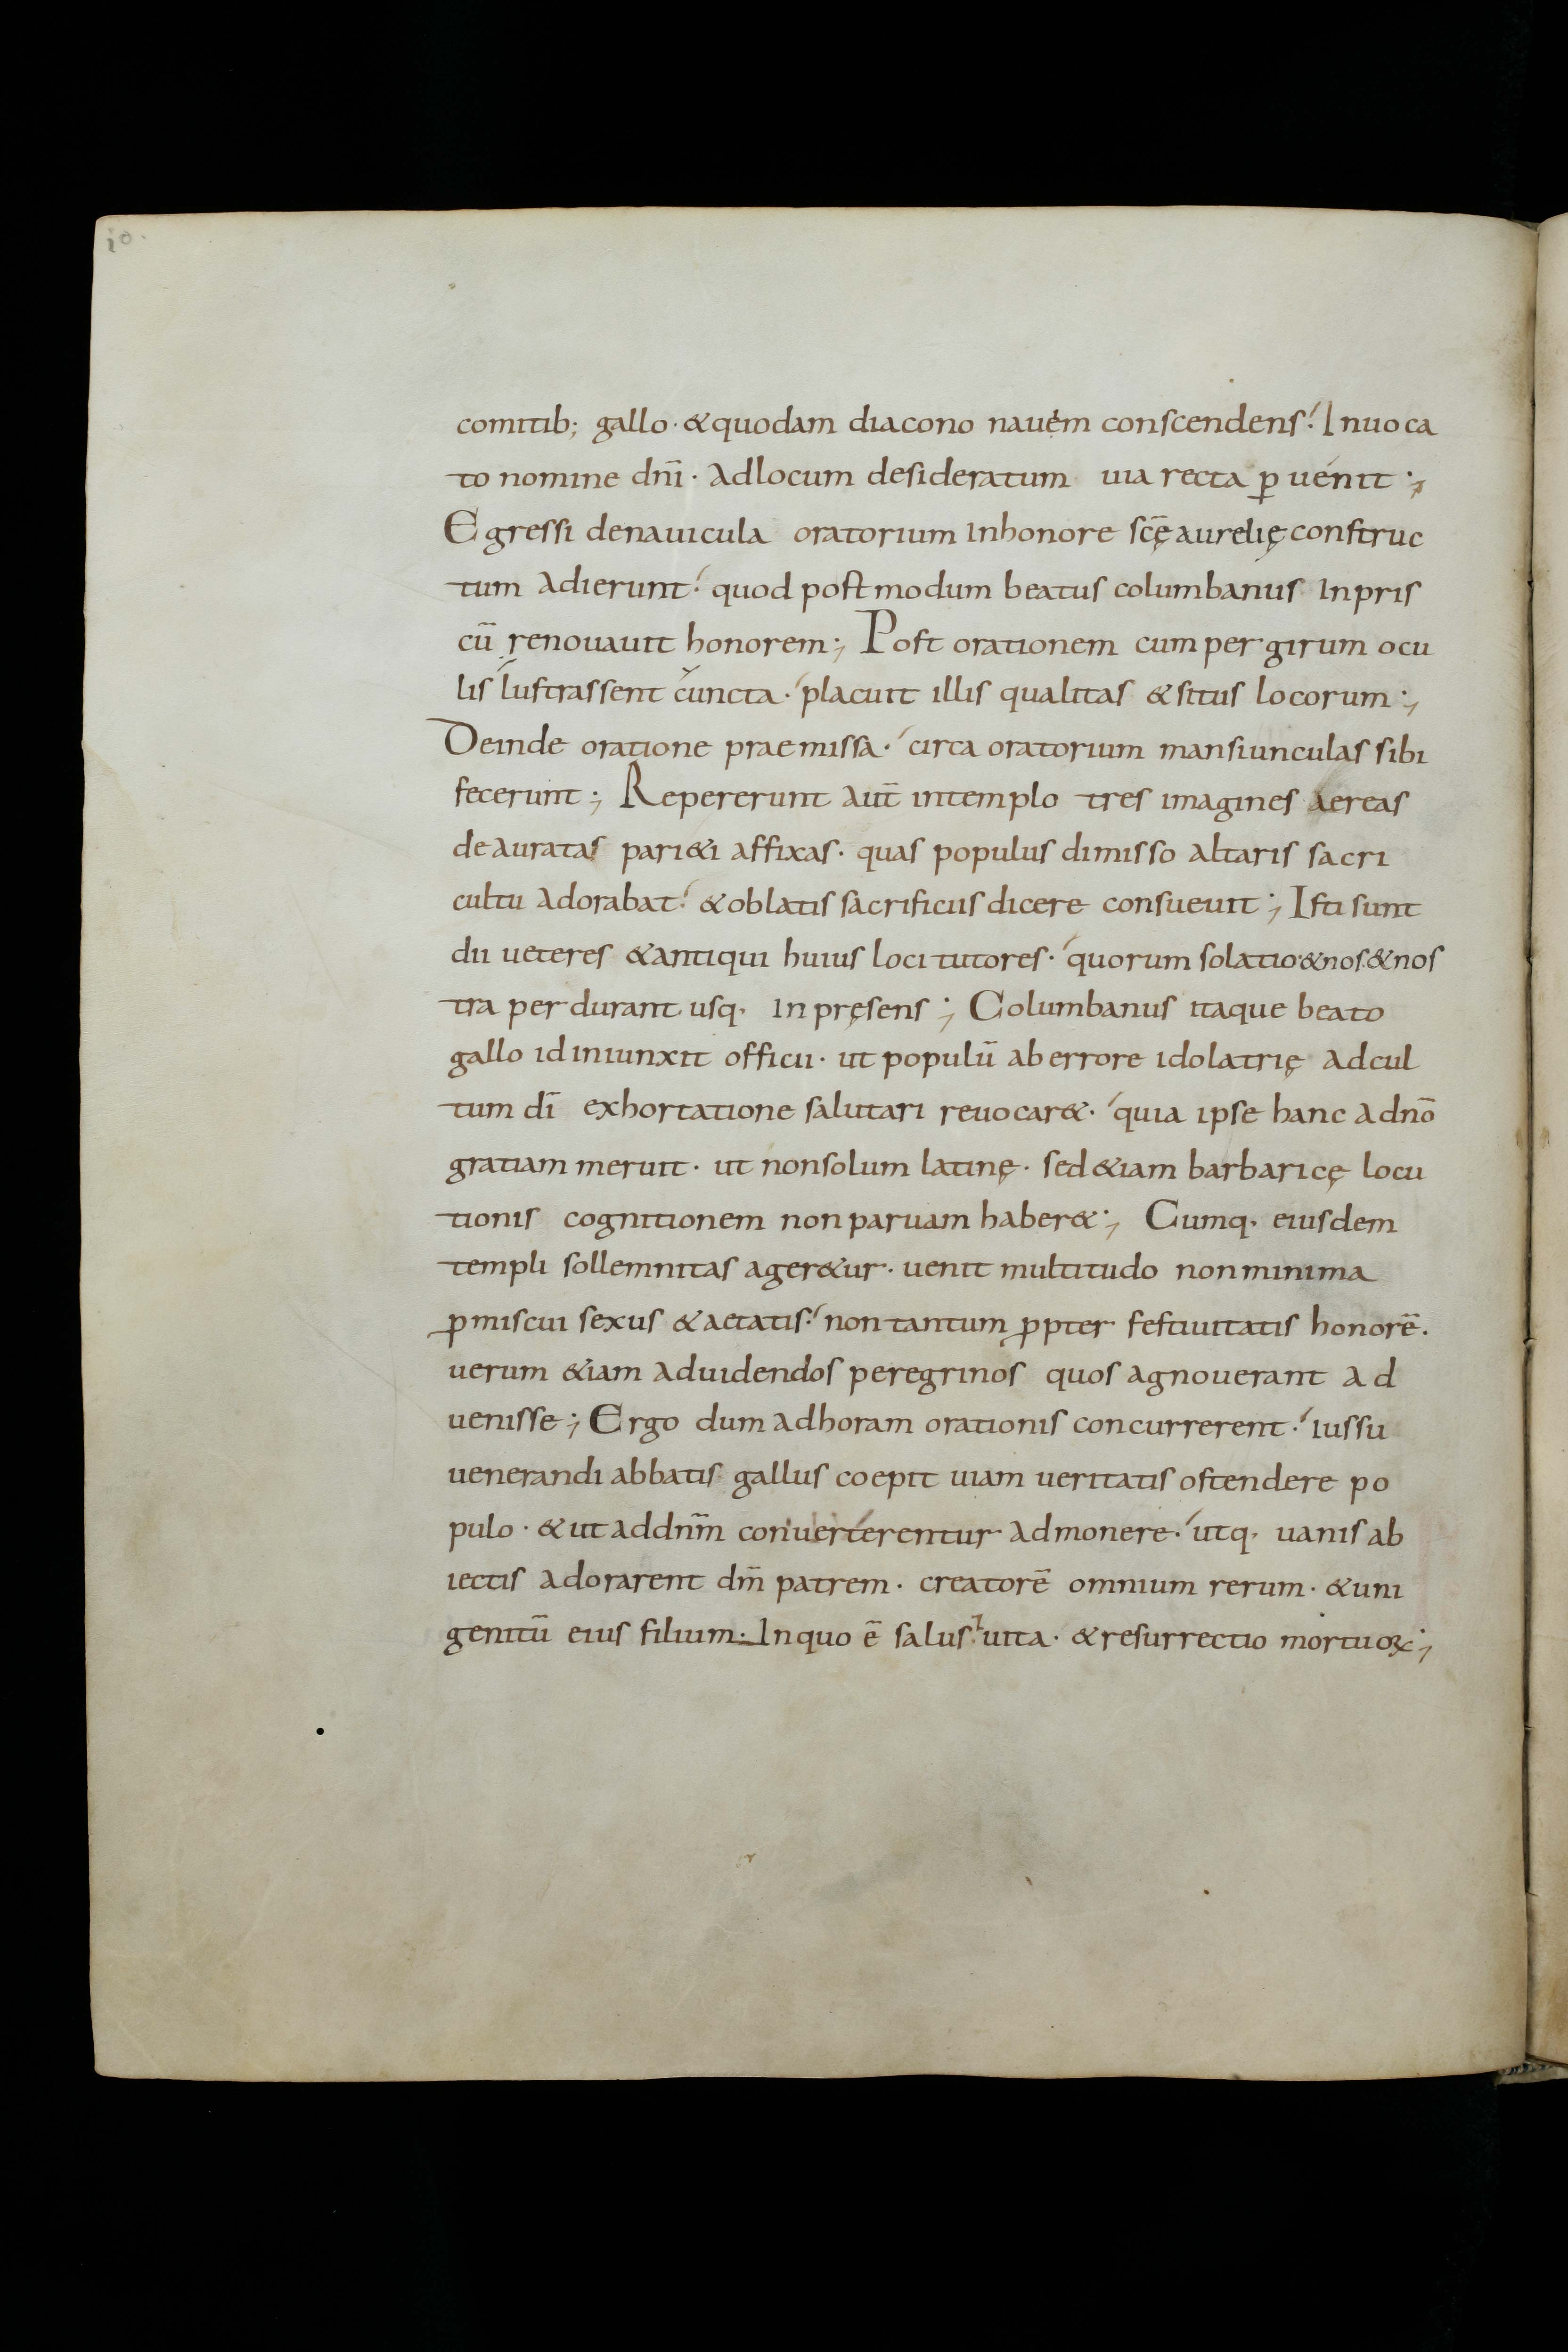 10.
comitib; gallo · & quodam diacono nauem conscendens! Inuoca
to nomine dn̄i · ad locum desideratum uia recta ꝑuenit ·,
Egressi de nauicula oratorium in honore sc̄ę aurelię construc
tum adierunt! quod postmodum beatus columbanus in pris
cū renouauit honorem ·, Post orationem cum per girum ocu
lis lustrassent cuncta · placuit illis qualitas & situs locorum ·,
Deinde oratione praemissa · circa oratorium mansiunculas sibi
fecerunt ·, Repererunt aut̄ in templo tres imagines aereas
deauratas pari&i affixas · quas populus dimisso altaris sacri
cultu adorabat! & oblatis sacrificiis dicere consueuit ·, Isti sunt
dii ueteres & antiqui huius loci tutores · quorum solatio · & nos · & nos
tra perdurant usq· in pręsens ·, Columbanus itaque beato
gallo id iniunxit officii · ut populū ab errore idolatrię ad cul
tum dī exhortatione salutari reuocar& · quia ipse hanc a dn̄o
gratiam meruit · ut non solum latinę · sed &iam barbaricę locu
tionis cognitionem non paruam haber& ·, Cumq· eiusdem
templi sollemnitas ager&ur · uenit multitudo non minima
ꝓmiscui sexus & aetatis! non tantum ꝓpter festiuitatis honorē ·
uerum &iam ad uidendos peregrinos quos agnouerant ad
uenisse ·, Ergo dum ad horam orationis concurrerent! iussu
uenerandi abbatis gallus coepit uiam ueritatis ostendere po
pulo · & ut ad dn̄m conuerterentur admonere · utq· uanis ab
iectis adorarent dm̄ patrem · creatorē omnium rerum · & uni
genitū eius filium · In quo ē salus · uita · & resurrectio mortuoꝝ ·,